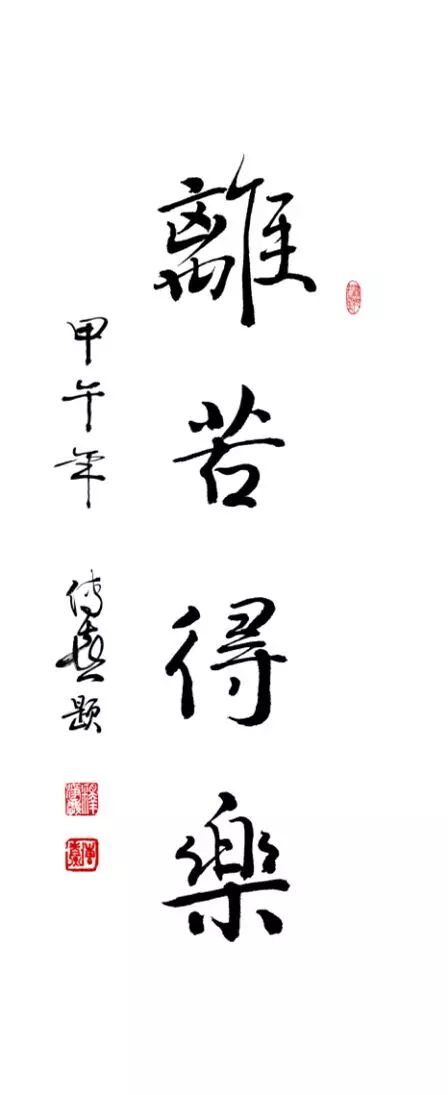 離苦得樂
甲午年 傳喜題